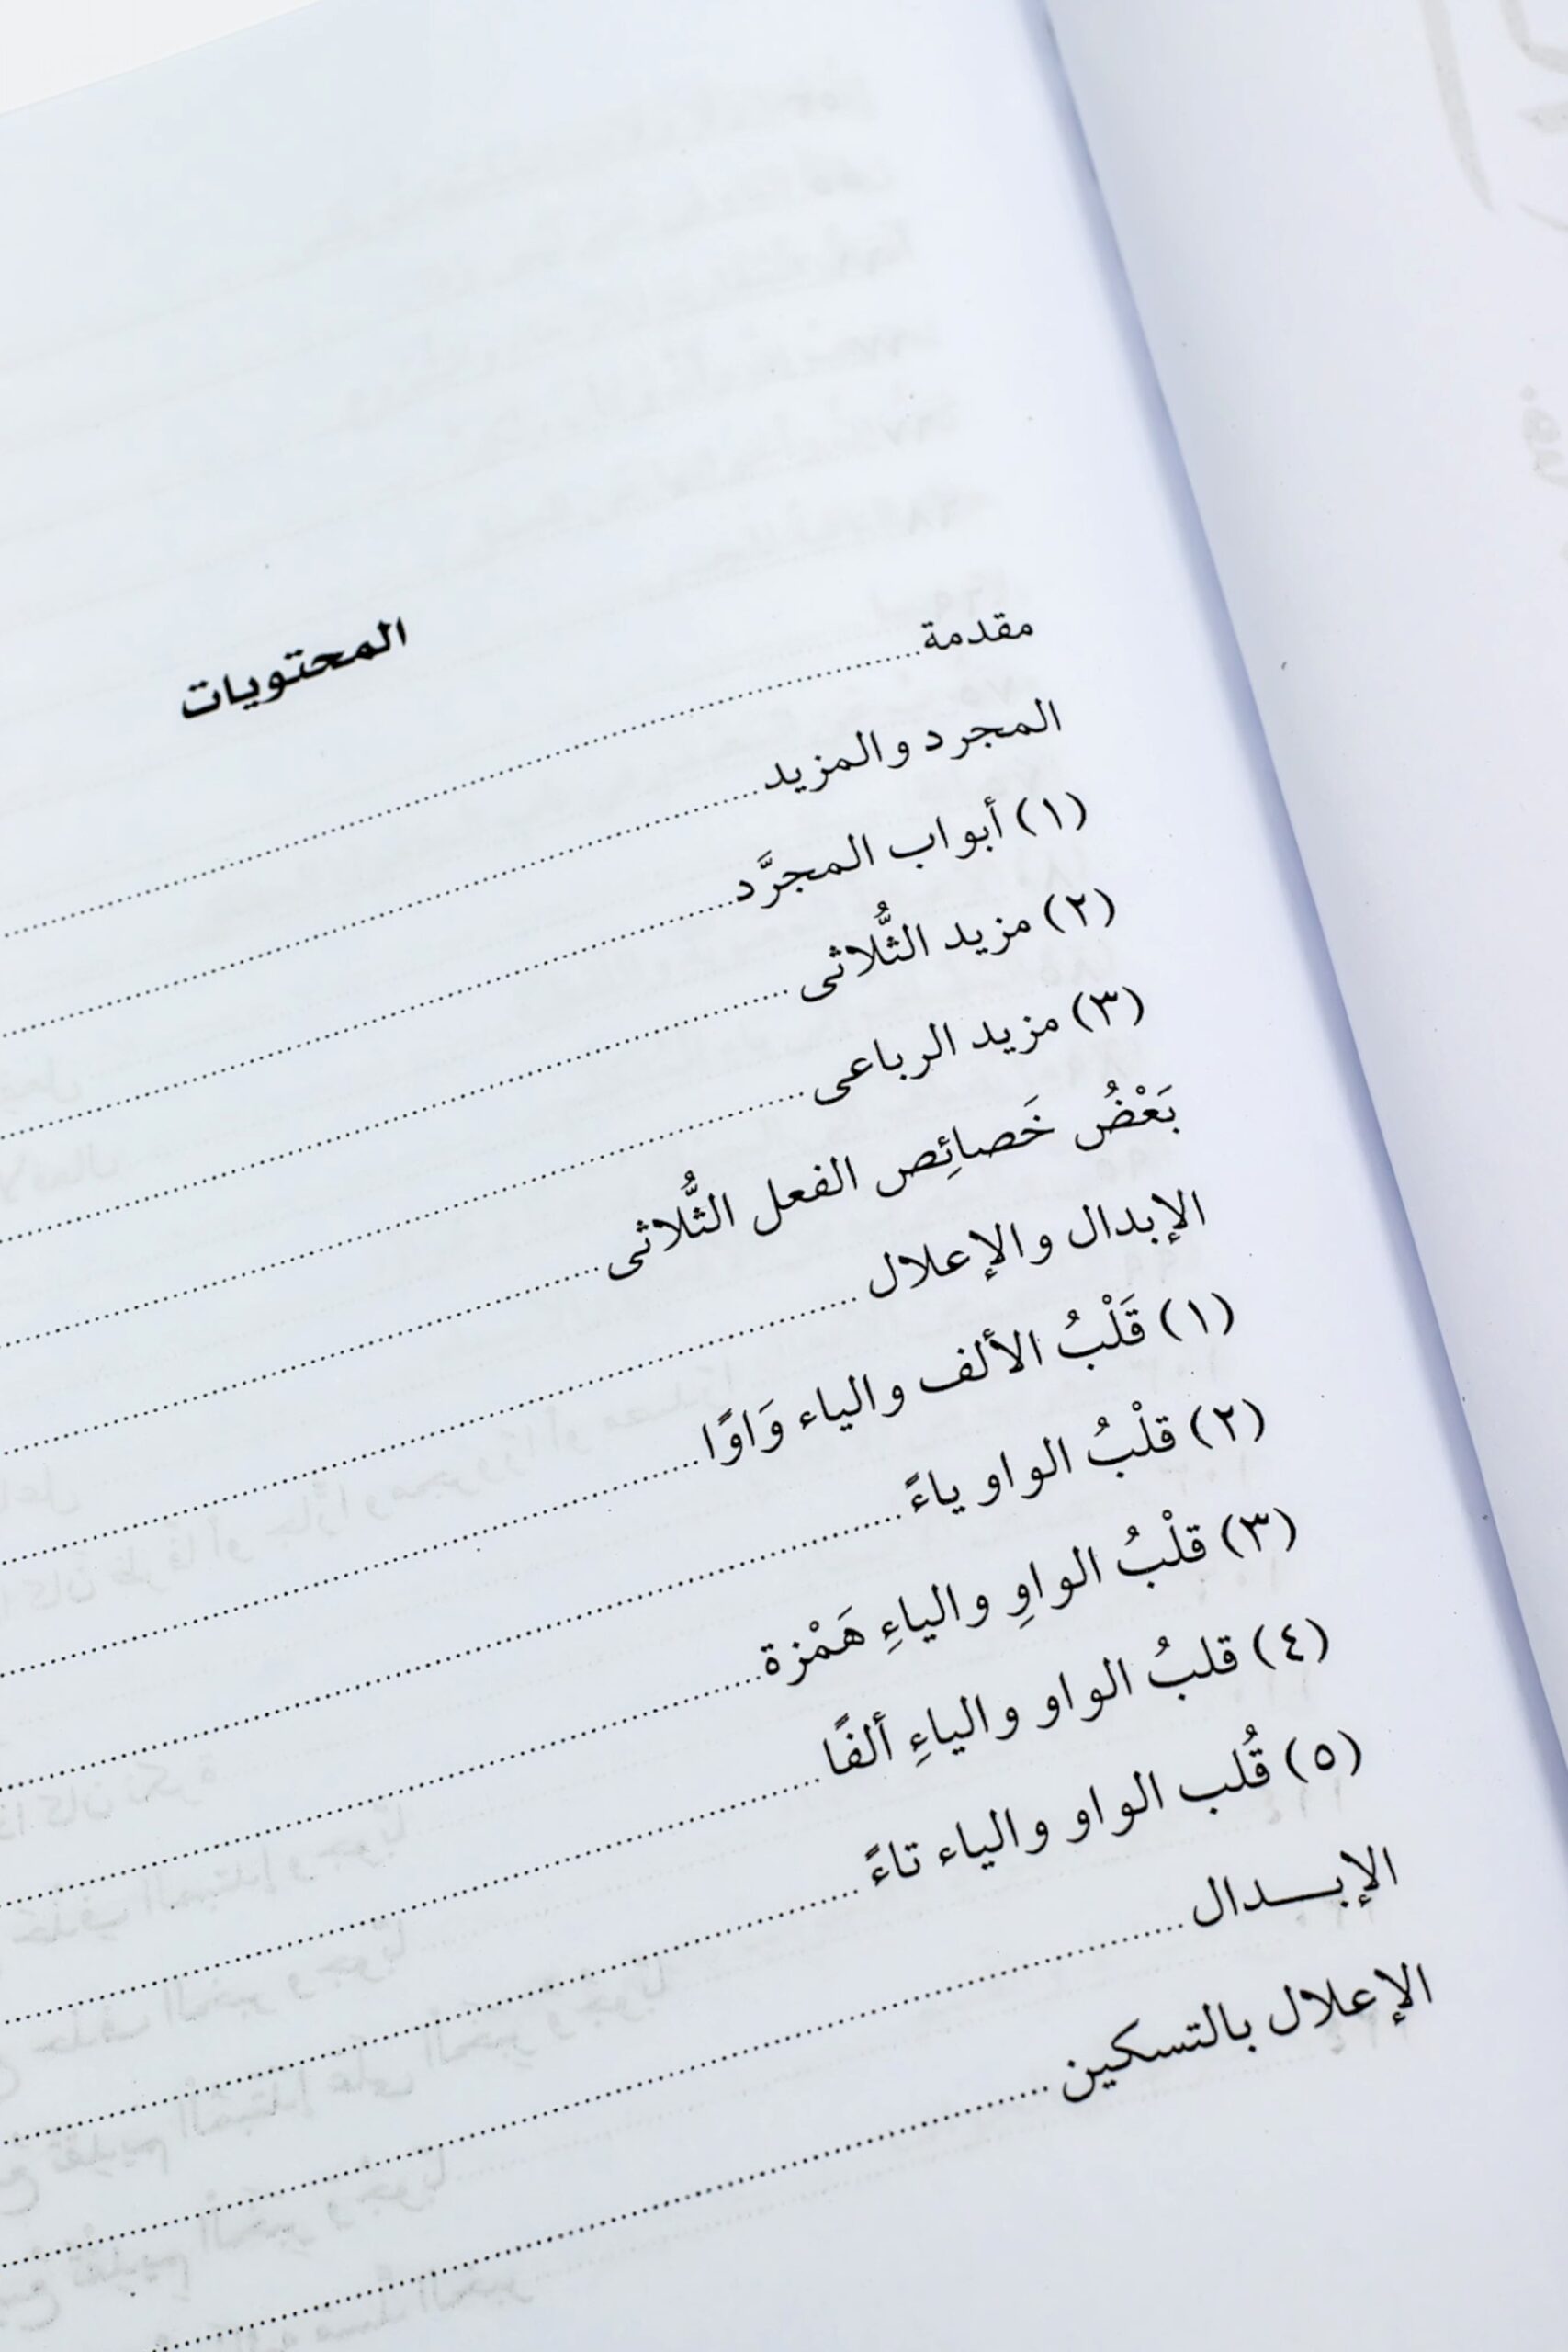 المحتويات
مقدمة
المجرد والمزيد
(١) أبواب المجرَّد
(٢) مزيد الثُّلاثى
(٣) مزيد الرباعى
بَعْضُ خَصائِص الفعل الثُّلاثى
الإبدال والإعلال
(١) قَلْبُ الألف والياء وَاوًا
(٢) قلْبُ الواو ياءً
(٣) قلْبُ الواوِ والياءِ هَمْزة
(٤) قلبُ الواو والياءِ ألفًا
(٥) قُلب الواو والياء تاءً
الإبـــدال
الإعلال بالتسكين